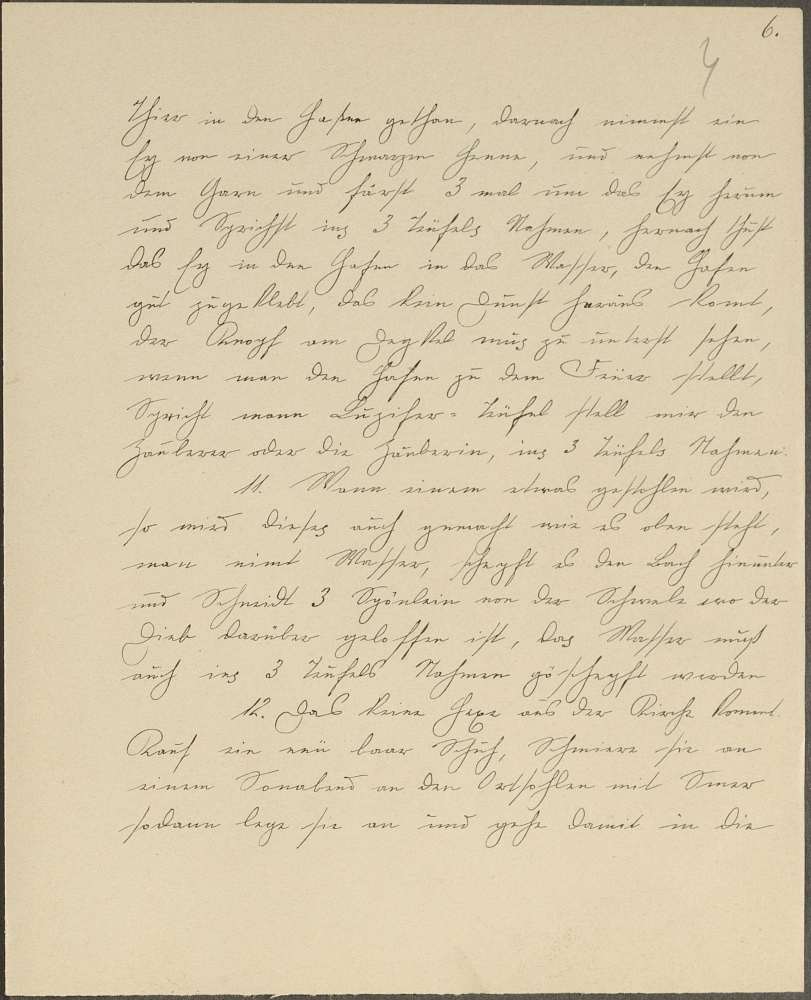 6.
4
Thier in den Hafen gethan, darnach nimmst ein
Ey von einer Schwarzen Henne, und nehmst von
dem Garn und fürst 3 mal um das Ey herum
und Sprichst ins 3 Teüfels Nahmen, hernach thust
das Ey in den Hafen in das Wasser, den Hafen
gut zugeklebt, das kein Dunst heraus komt,
der Knopf am Degkel mus zu unterst sehen,
wenn man den Hafen zu dem Feüer stellt,
Spricht mann Luzifer= Teüfel stell mir den
Zauberer oder die Zauberin, ins 3 Teüfels Nahmen.
11. Wann einem etwas gestohlen wird,
so wird dieses auch gemacht wie es oben steht,
man nimt Wasser, schepft es den Bach hinunter
und Schneidt 3 Spönlein von der Schwele wo der
Dieb darüber geloffen ist, das Wasser muß
auch ins 3 Teufels Nahmen göschepft werden
12. Das keine Hexe aus der Kirche kommt.
Kauf ein neü baar Schuh, Schmiere sie an
einem Sonabend an den Ortsohlen mit Smer
sodann lege sie an und gehe damit in die